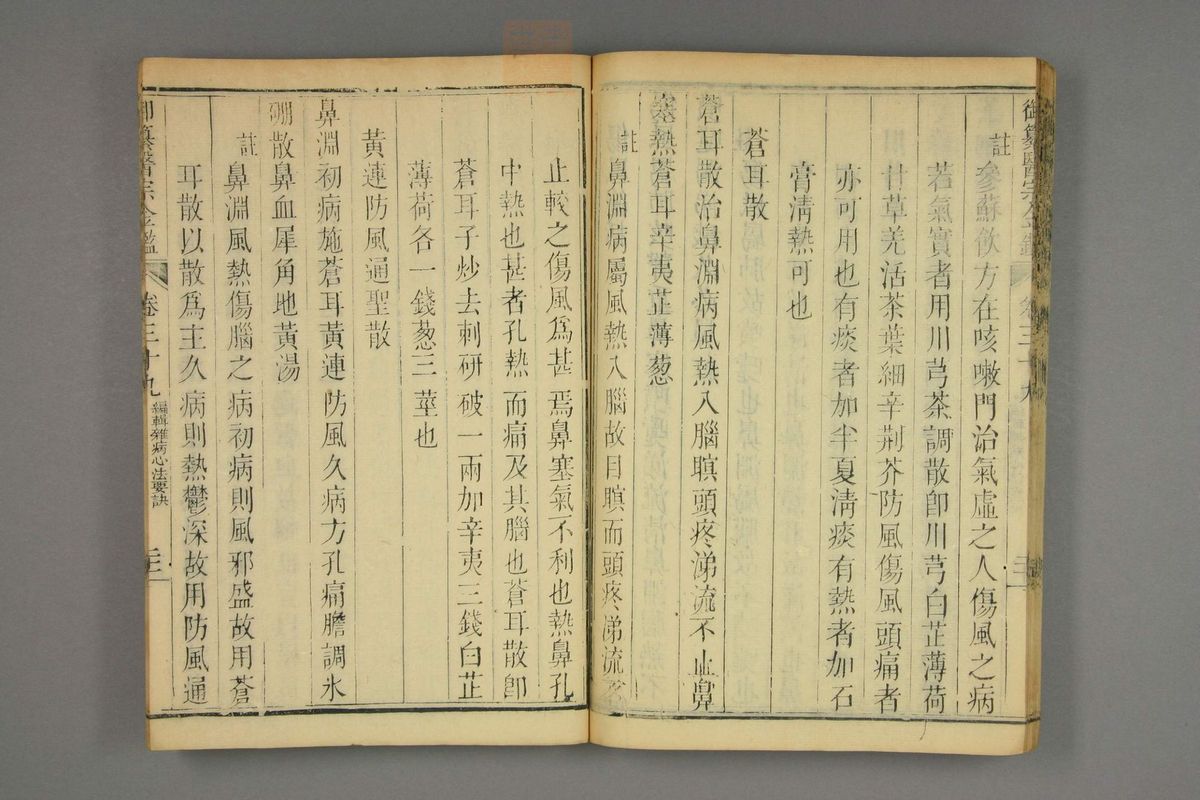 御纂醫宗金鑑 卷三十九
註參蘇飲方在咳嗽門治氣虛之人傷風之病
若氣實者用川芎茶調散卽川芎白芷薄荷
甘草羌活茶葉細辛荆芥防風傷風頭痛者
亦可用也有痰者加半夏淸痰有熱者加石
膏淸熱可也
蒼耳散
蒼耳散治鼻淵病風熱入腦瞑頭疼涕流不止鼻
塞熱蒼耳辛夷芷薄葱
註鼻淵病屬風熱入腦故目瞑而頭疼涕流不
止較之傷風爲甚焉鼻塞氣不利也熱鼻孔
中熱也甚者孔熱而痛及其腦也蒼耳散卽
蒼耳子炒去刺硏破一兩加辛夷三錢白芷
薄荷各一錢葱三莖也
黃連防風通聖散
鼻淵初病施蒼耳黃連防風久病方孔痛膽調氷
硼散鼻血犀角地黃湯
註鼻淵風熱傷腦之病初病則風邪盛故用蒼
耳散以散爲主久病則熱鬱深故用防風通
御纂醫宗金鑑 卷三十九 編輯雜病心法要訣